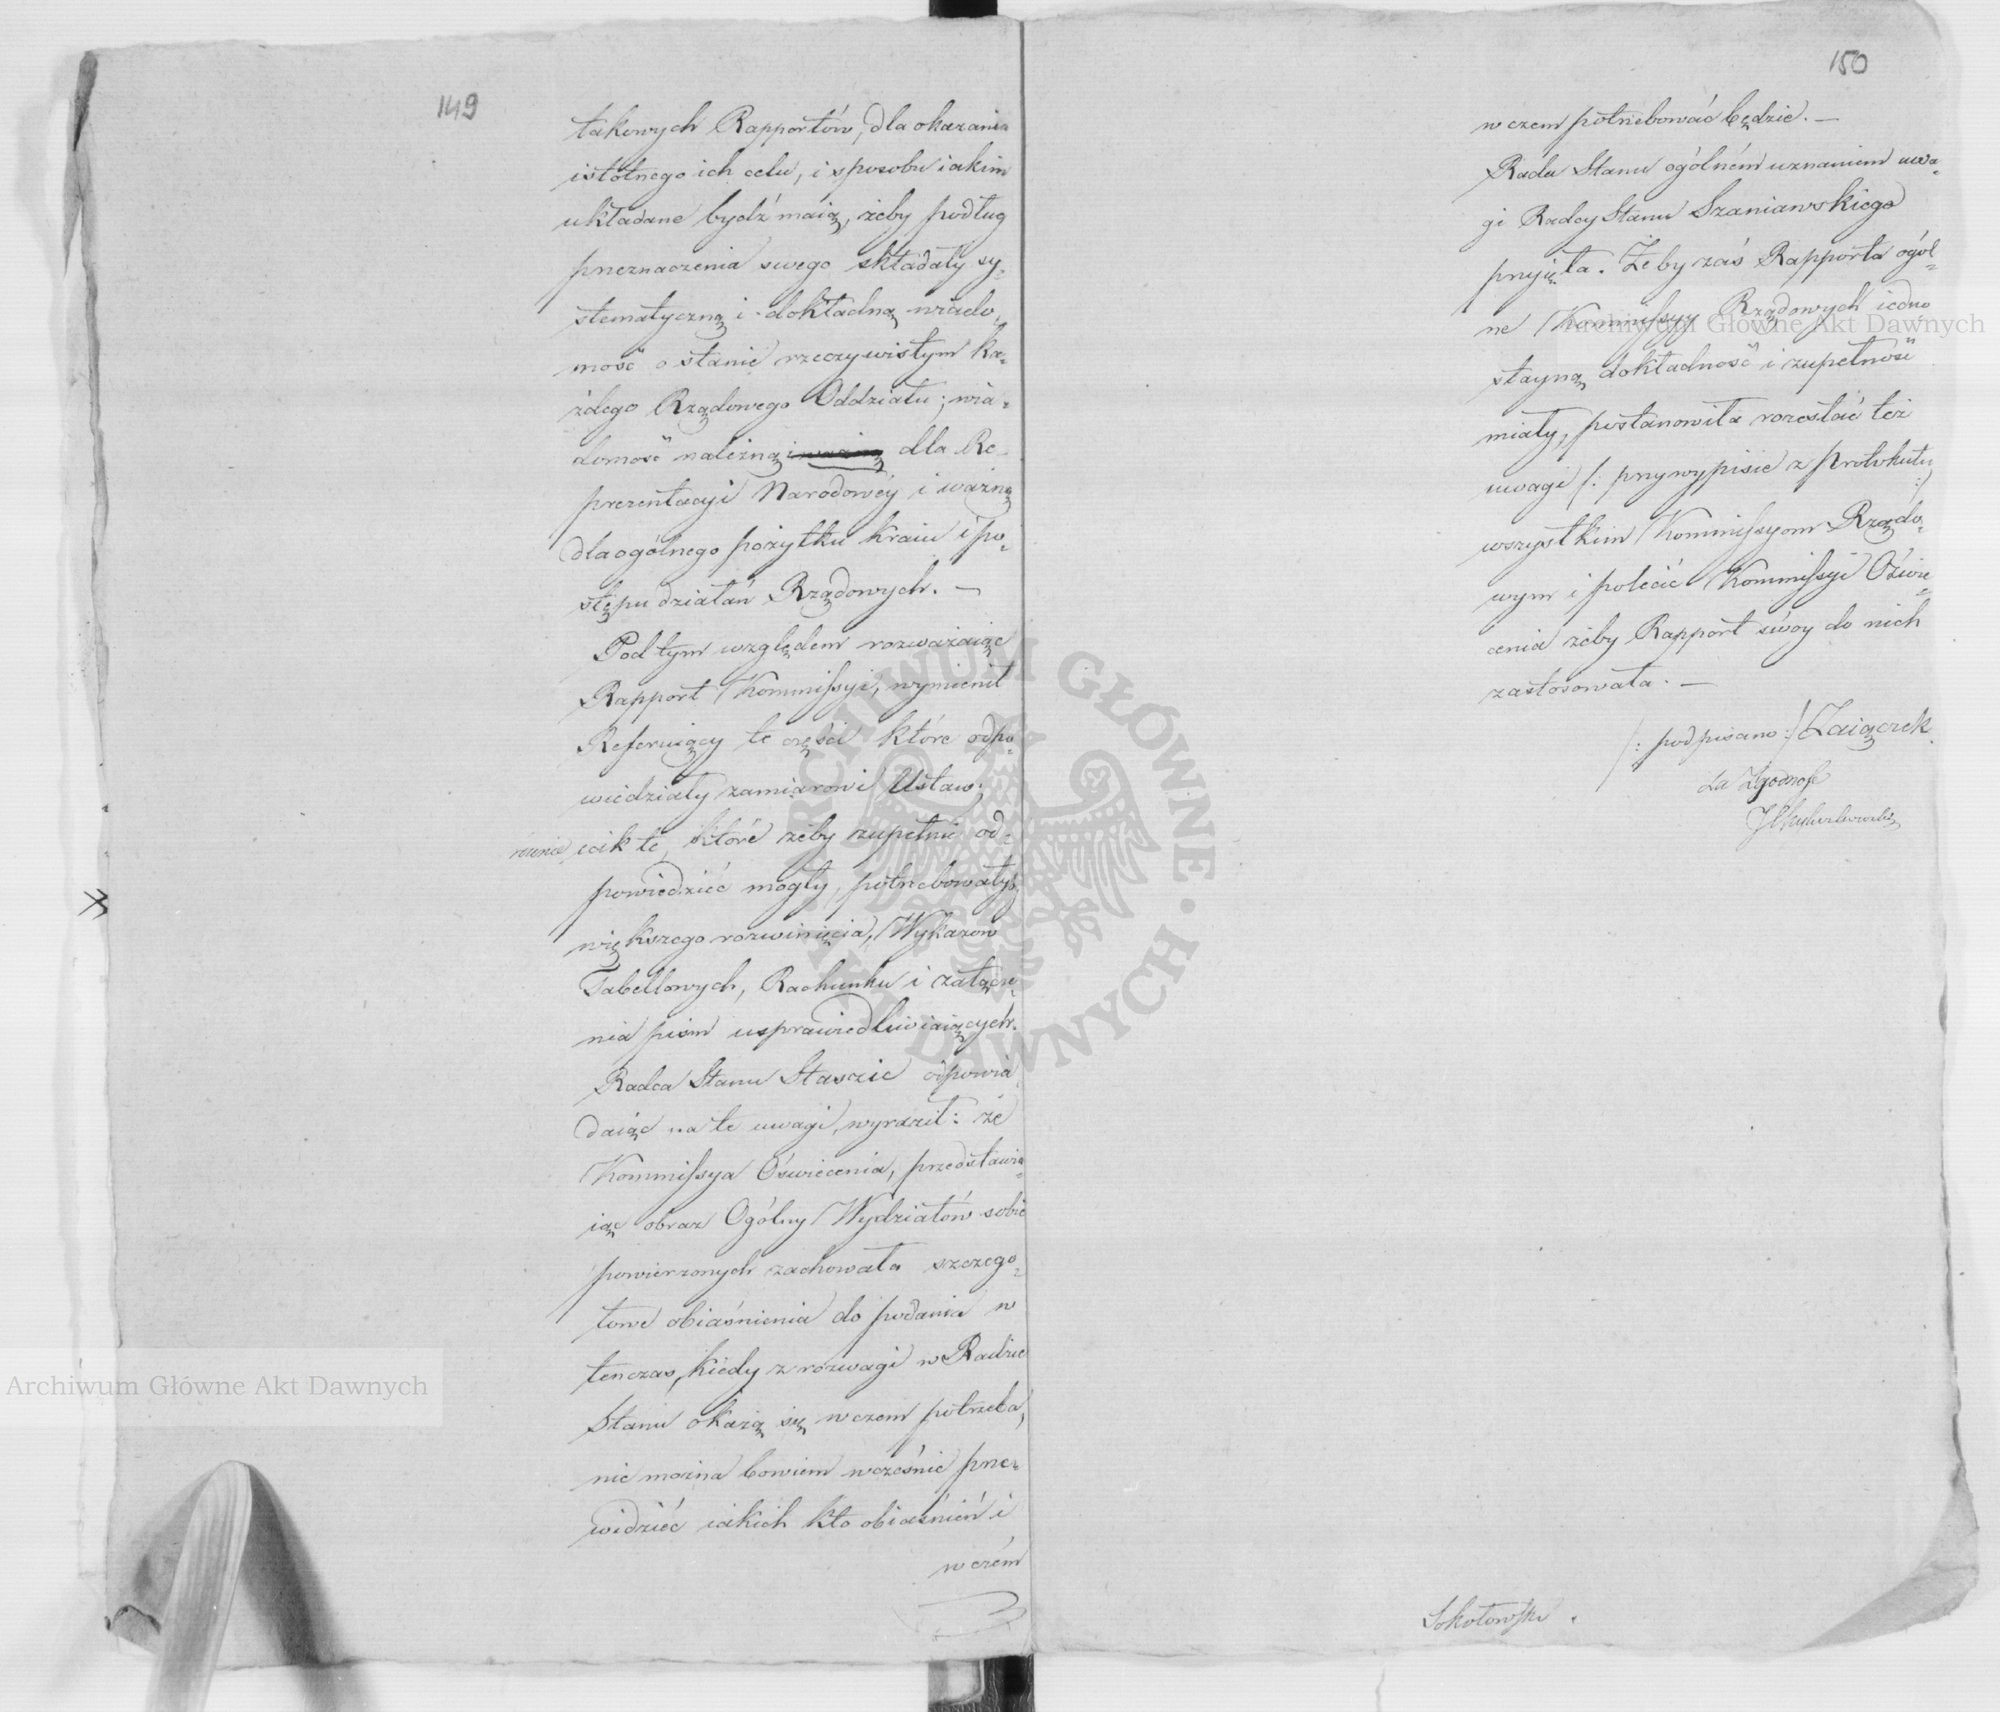 149
takowych Rapportów, dla okazania
istotnego ich celu, i sposobu iakim
układane bydź maią, żeby podług
przeznaczenia swego składały sy-
stematyczną i dokładną wiado-
mość o stanie rzeczywistym ka-
żdego Rządowego Oddziału; wia-
domość należną i ważną dla Re-
prezentacyi Narodowéy i ważną
dla ogólnego pożytku kraiu i po-
stępu działań Rządowych. —
Pod tym względem rozważaiąc
Rapport Kommissyi, wymienił
Referuiący te części które odpo-
wiedziały zamiarowi Ustaw;
równie iak te, które żeby zupełnie od-
powiedzieć mogły, potrzebowałyby
większego rozwinięcia, Wykazów
Tabellowych, Rachunku i załącze-
nia pism usprawiedliwiaiących.
Radca Stanu Staszic odpowia-
daiąc na te uwagi, wyraził: że
Kommissya Oświecenia, przedstawia-
iąc obraz Ogólny Wydziałów sobie
powierzonych zachowała szczegó-
łowe obiaśnienia do podania w
tenczas, kiedy z rozwagi w Radzie
Stanu okażą się w czem potrzeba,
nie można bowiem wcześnie prze-
widzieć iakich kto obiaśnień i
w czém
150
w czem potrzebować będzie. —
Rada Stanu ogólném uznaniem uwa-
gi Radcy Stanu Szaniawskiego
przyięła. Żeby zaś Rapporta ogól-
ne Kommissyy Rządowych iedno-
stayną dokładność i zupełność
miały, postanowiła rozesłać też
uwagi /: przy wypisie z Protokułu :/
wszystkim Kommissyom Rządo-
wym i polecić Kommissyi Oświe-
cenia żeby Rapport swóy do nich
zastosowała. —
/: podpisano :/ Zaiączek
Za Zgodność
Sokołowski.
Archiwum Główne Akt Dawnych
Archiwum Główne Akt Dawnych
ARCHIWUM GŁÓWNE AKT DAWNYCH